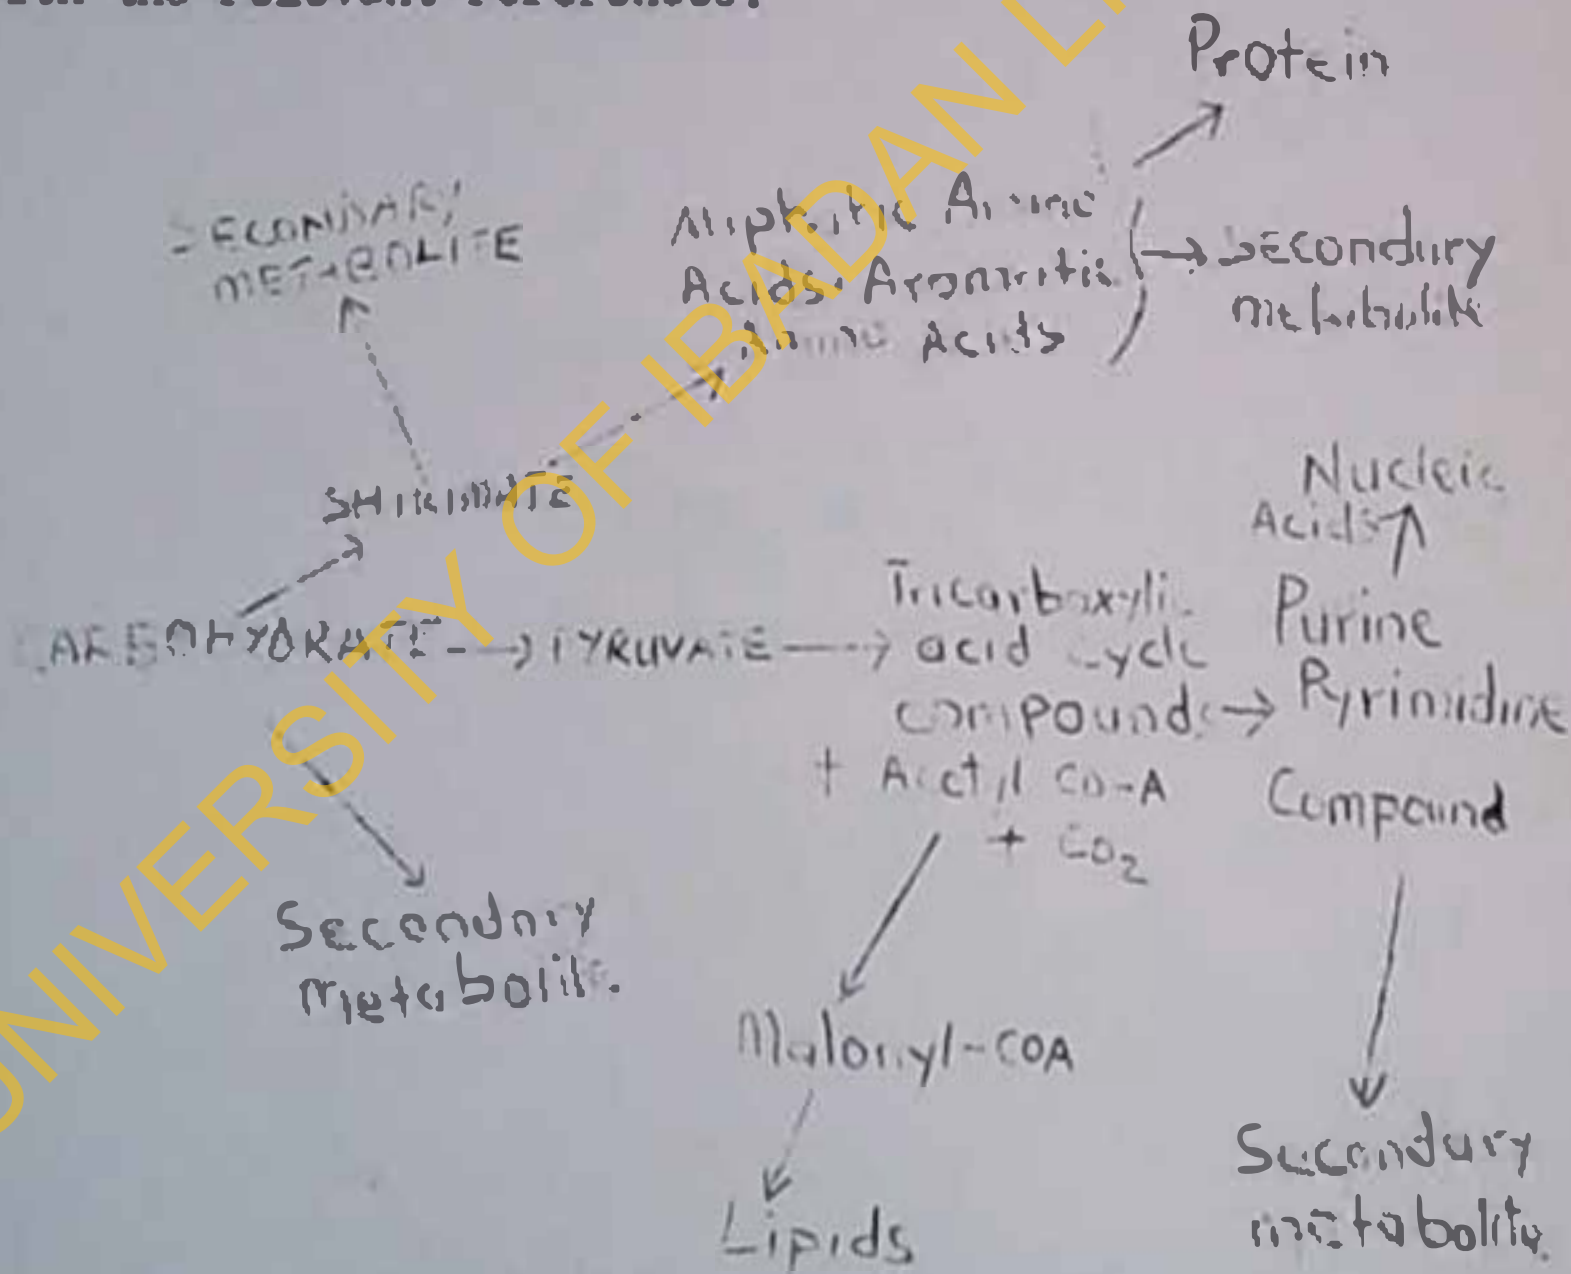 the relevant references.
Protein
SECONDARY
METABOLITE
Aliphatic Amino
Acids, Aromatic
Amino Acids
Secondary
metabolite
SHIKIMATE
Nucleic
Acids
CARBOHYDRATE
PYRUVATE
Tricarboxylic
acid cycle
compounds
+ Acetyl Co-A
+ CO2
Purine
Pyrimidine
Compound
Secondary
metabolite.
Malonyl-COA
Lipids
Secondary
metabolite.
UNIVERSITY OF IBADAN LI